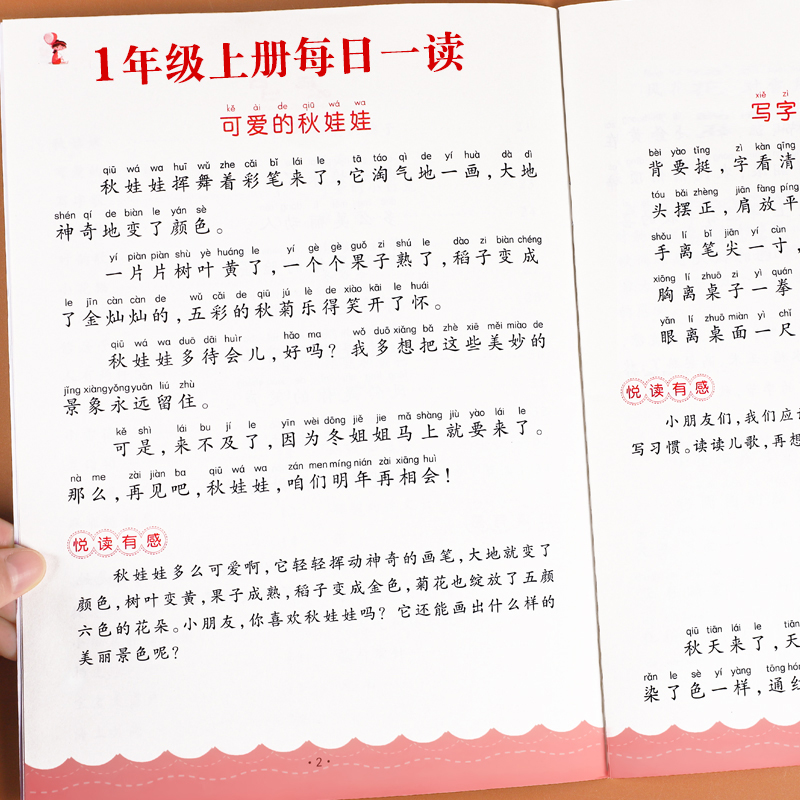 1年级上册每日一读
kě ài de qiū wá wa
可爱的秋娃娃
qiū wá wa huī wǔ zhe cǎi bǐ lái le tā táo qì de yí huà dà dì
秋娃娃挥舞着彩笔来了，它淘气地一画，大地
shén qí de biàn le yán sè
神奇地变了颜色。
yí piàn piàn shù yè huáng le yí gè gè guǒ zi shú le dào zi biàn chéng
一片片树叶黄了，一个个果子熟了，稻子变成
le jīn càn càn de wǔ cǎi de qiū jú lè de xiào kāi le huái
了金灿灿的，五彩的秋菊乐得笑开了怀。
qiū wá wa duō dāi huìr hǎo ma wǒ duō xiǎng bǎ zhè xiē měi miào de
秋娃娃多待会儿，好吗？我多想把这些美妙的
jǐng xiàng yǒng yuǎn liú zhù
景象永远留住。
kě shì lái bu jí le yīn wèi dōng jiě jie mǎ shàng jiù yào lái le
可是，来不及了，因为冬姐姐马上就要来了。
nà me zài jiàn ba qiū wá wa zán men míng nián zài xiāng huì
那么，再见吧，秋娃娃，咱们明年再相会！
悦读有感
秋娃娃多么可爱啊，它轻轻挥动神奇的画笔，大地就变了
颜色，树叶变黄，果子成熟，稻子变成金色，菊花也绽放了五颜
六色的花朵。小朋友，你喜欢秋娃娃吗？它还能画出什么样的
美丽景色呢？
·2·
xiě zì
写字
bèi yào tǐng zì kàn qīng
背要挺，字看清
tóu bǎi zhèng jiān fàng píng
头摆正，肩放平
shǒu lí bǐ jiān yí cùn
手离笔尖一寸，
xiōng lí zhuō zi yì quán
胸离桌子一拳
yǎn lí zhuō miàn yì chǐ
眼离桌面一尺
悦读有感
小朋友们，我们应
写习惯。读读儿歌，再想
qiū tiān lái le tiān
秋天来了，天
rǎn le sè yí yàng tōng hóng
染了色一样，通红